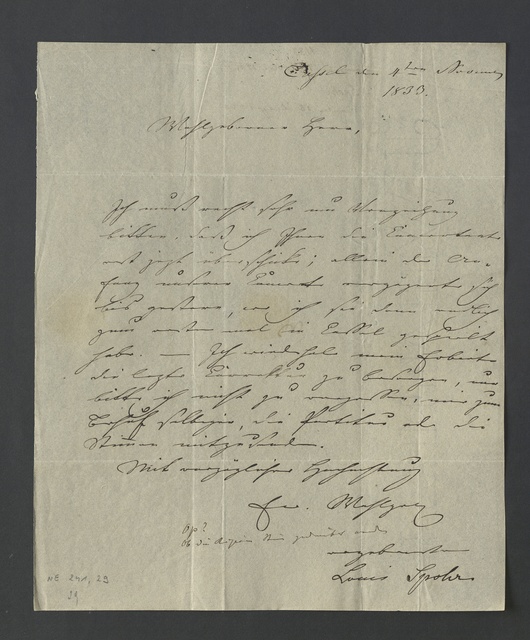 Cassel den 4ten November
1833.
Wohlgeborner Herr,
Ich muß recht sehr um Verzeihung
bitten, daß ich Ihnen die
erst jetzt überschicke; allein der An-
fang unserer Concerte verzögerte sich
bis gestern, wo ich sie denn endlich
zum ersten mal in Cassel gespielt
habe. — Ich wiederhole mein Erbieten
die letzte Correktur zu besorgen, nur
bitte ich nicht zu vergessen, mir zum
Behuf selbiger, die Partitur od. die
Stimmen mitzusenden.
Mit vorzüglicher Hochachtung
Ew. Wohlgeb.
Op?
ergebenster
Louis Spohr